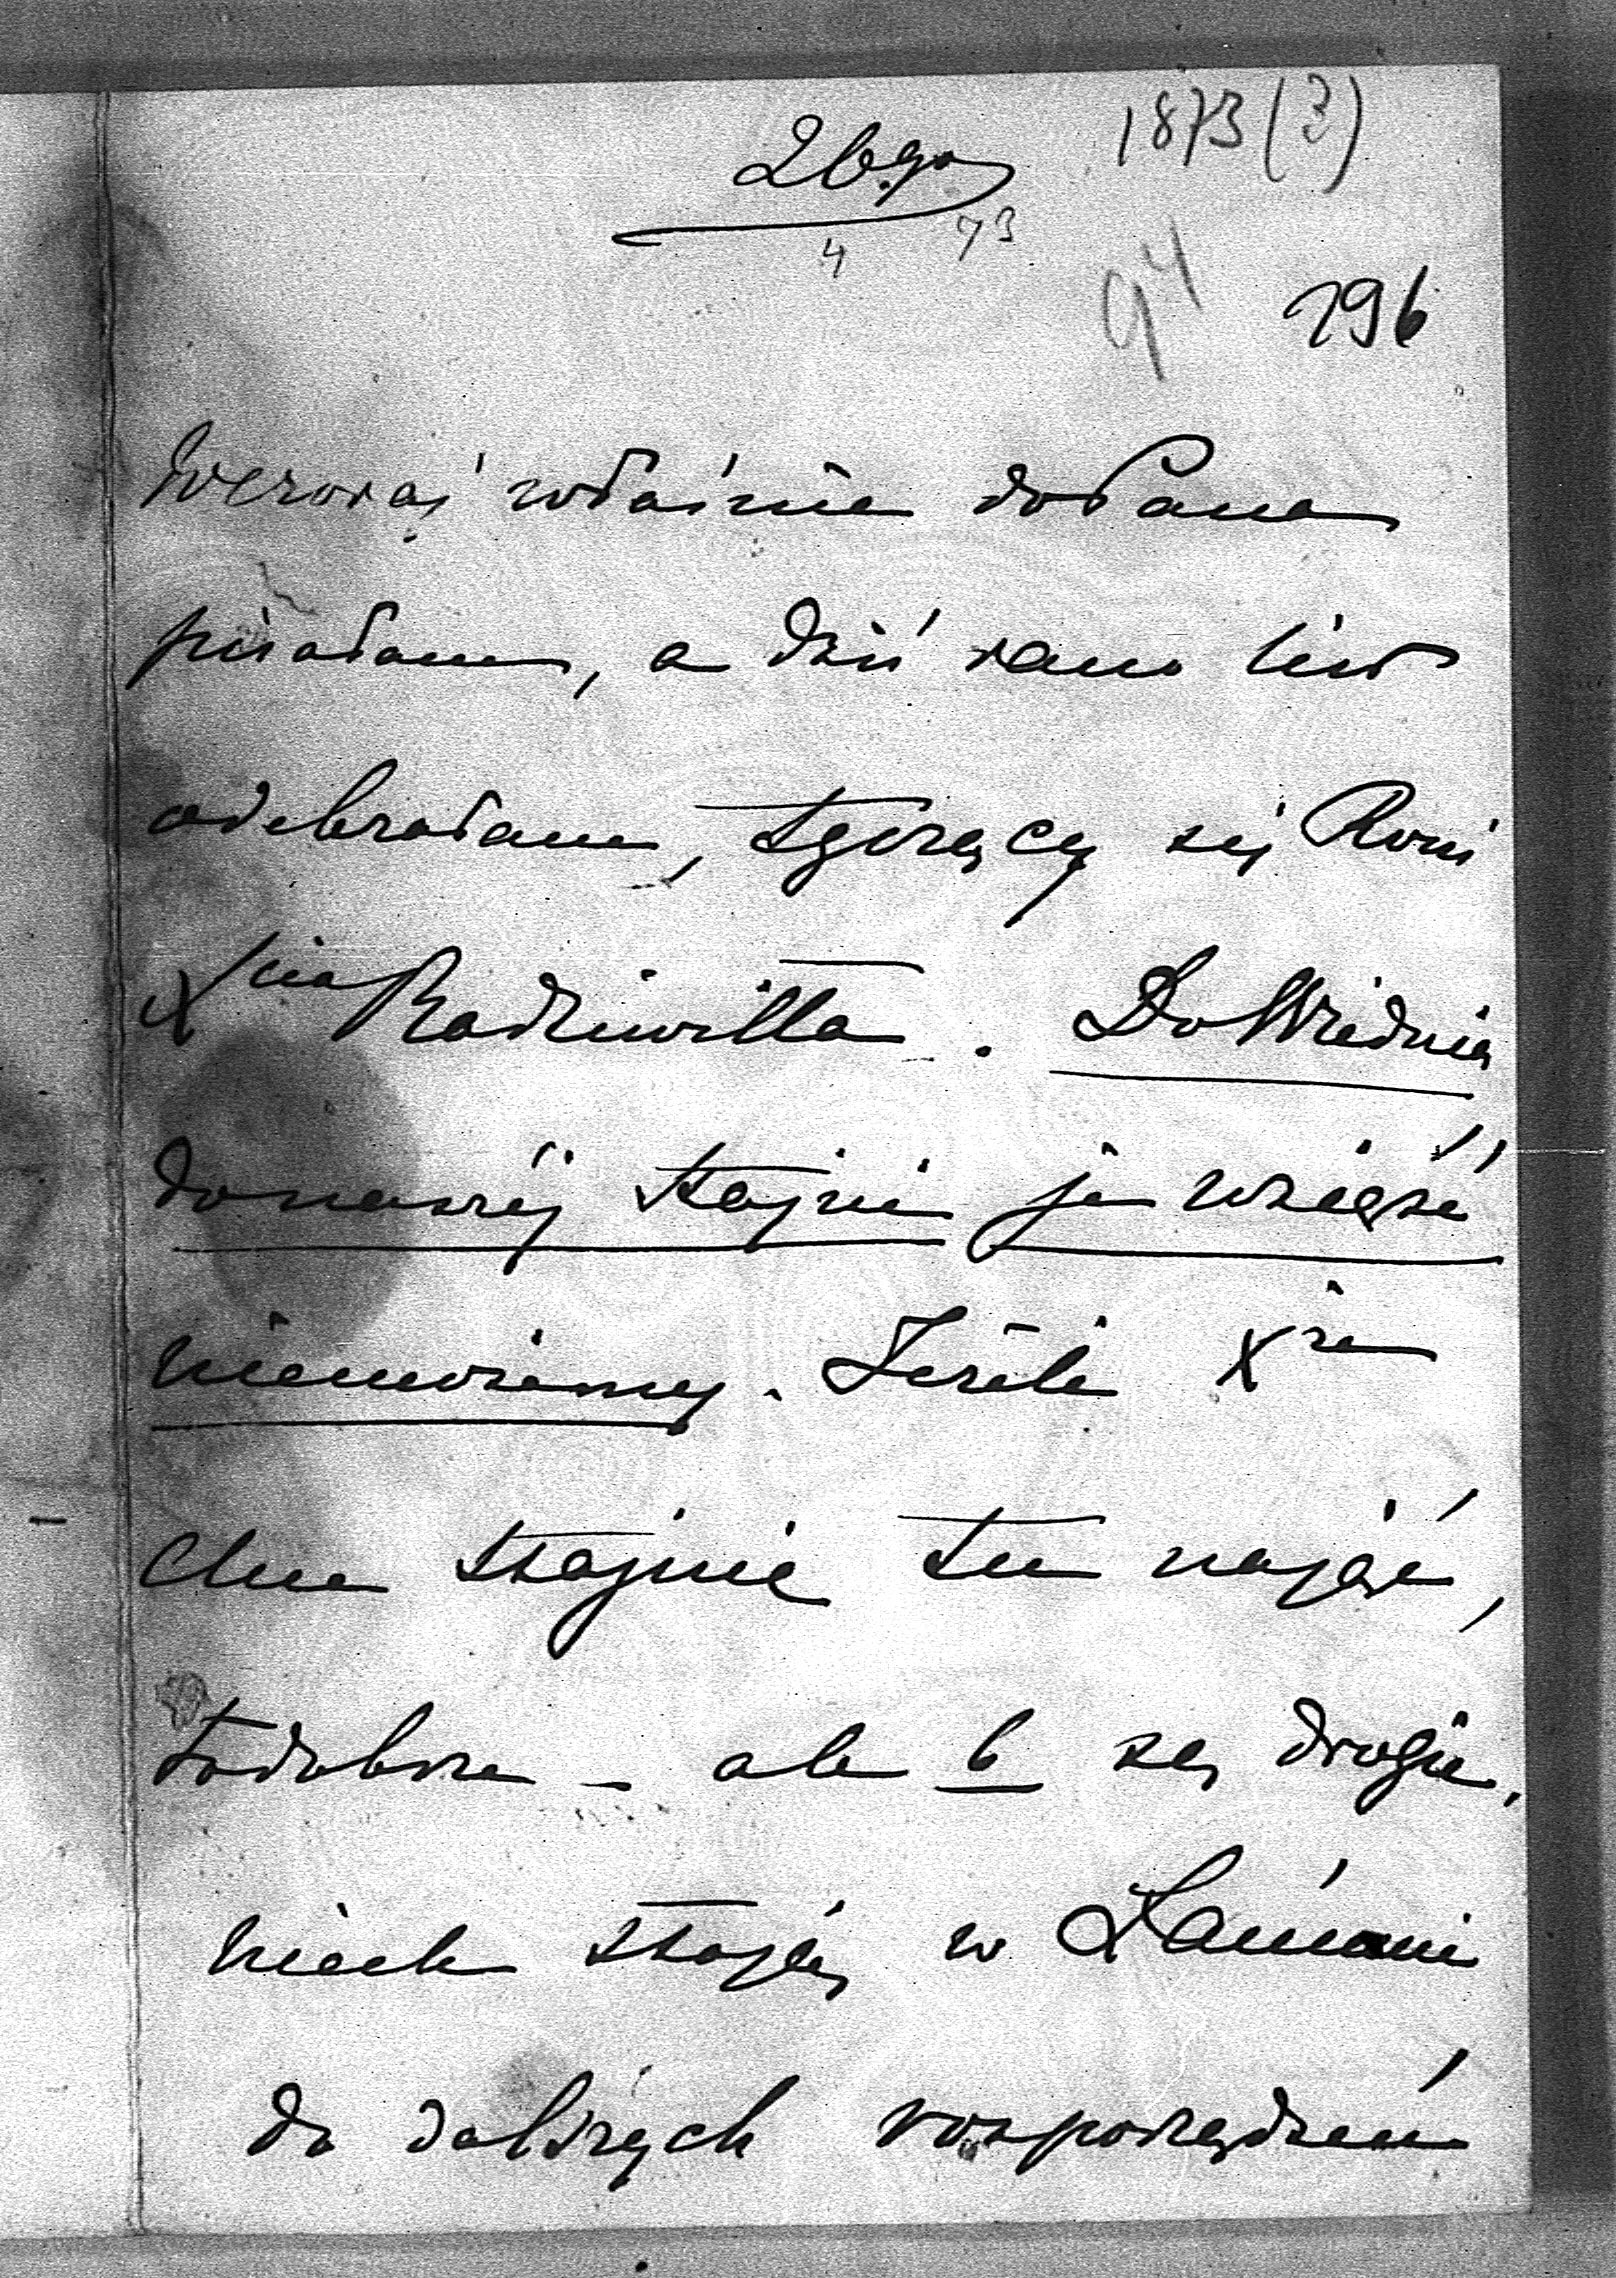 1873 (?)
26go
4 73
94
196
Wczoraj właśnie do Pana
pisałam, a dziś rano list
odebrałam, tyczący się Koni
Xcia Radziwiłła. Do Wiednia
do naszéj stajni je wziąść
niemożemy. Jeżeli Xże
chce stajnie tu nająć,
to dobrze – ale 6 są drogie,
niech stoją w Łańcucie
do dalszych rozporządzeń